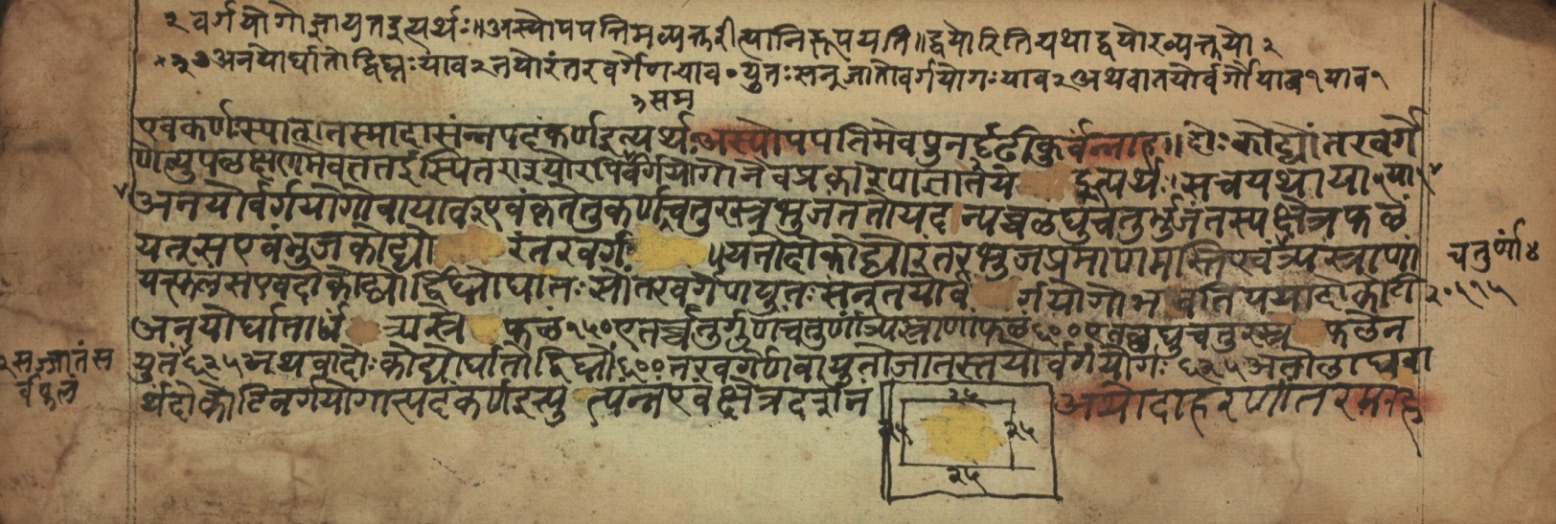 २ वर्गयोगो ज्ञायत इत्यर्थः॥ अस्योपपत्तिमव्यक्तरीत्या निरूपयति॥ द्वयोरिति यथा द्वयोरव्यक्तयो २
अनयोर्घातो द्विघ्नः याव २ तयोरंतरवर्गेण याव ० युतः सन् जातो वर्गयोगः याव २ अथवा तयोर्वर्गौ याव १ याव १
३ सम्
एव कर्णः स्यात्। तस्मादासंन्नपदं कर्ण इत्यर्थः अस्योपपतिमेव पुनर्दृढीकुर्वन्नाह॥ दोः कोट्यो तरवर्गे
णेत्युपलक्षणमेव तत इस्पित वर्गयोगो इत्यर्थः। स च यथा या १ या १
अनयोर्वर्गयोगो वा याव २ एवं कृते तु कर्ण चतुरस्रभुज ततो यद न्यच्च लघुचतुर्भुजं तस्य क्षेत्रफलं
यत् स एवं भुजकोट्यो रंतरवर्ग ॥ यतो दोकोट्योरंतरं भुजप्रमाणमस्ति एवं त्र्यस्त्राणां
चतुर्णां ४
यत्फलं स एव दोकोट्यो र्द्विघ्नो घातः सोंतरवर्गेण युतः सन् तयोर्व र्गयोगो भवति यथा दोकोटी २०।१५
अनयोर्घातार्धं त्र्यस्रे फलं १५० एतच्चतुर्गुणं चतुर्णां त्र्यस्राणां फलं ६०० एतल्लघुचतुरस्र फलेन
युतं ६२५ अथवा दोः कोट्योर्घातो द्विघ्नो ६०० तरवर्गेण वा युतो जातस्तयोर्वर्गयोगः ६२५ अतो लाघवा
२ सञ्जातं स
र्वफलं
र्थं दोकोटिवर्गयोगात्पदं कर्ण इत्यु त्पन्नं एवं क्षेत्रदर्शनं
अथोदाहरणांतरमाह
२५
२५
२५
२५